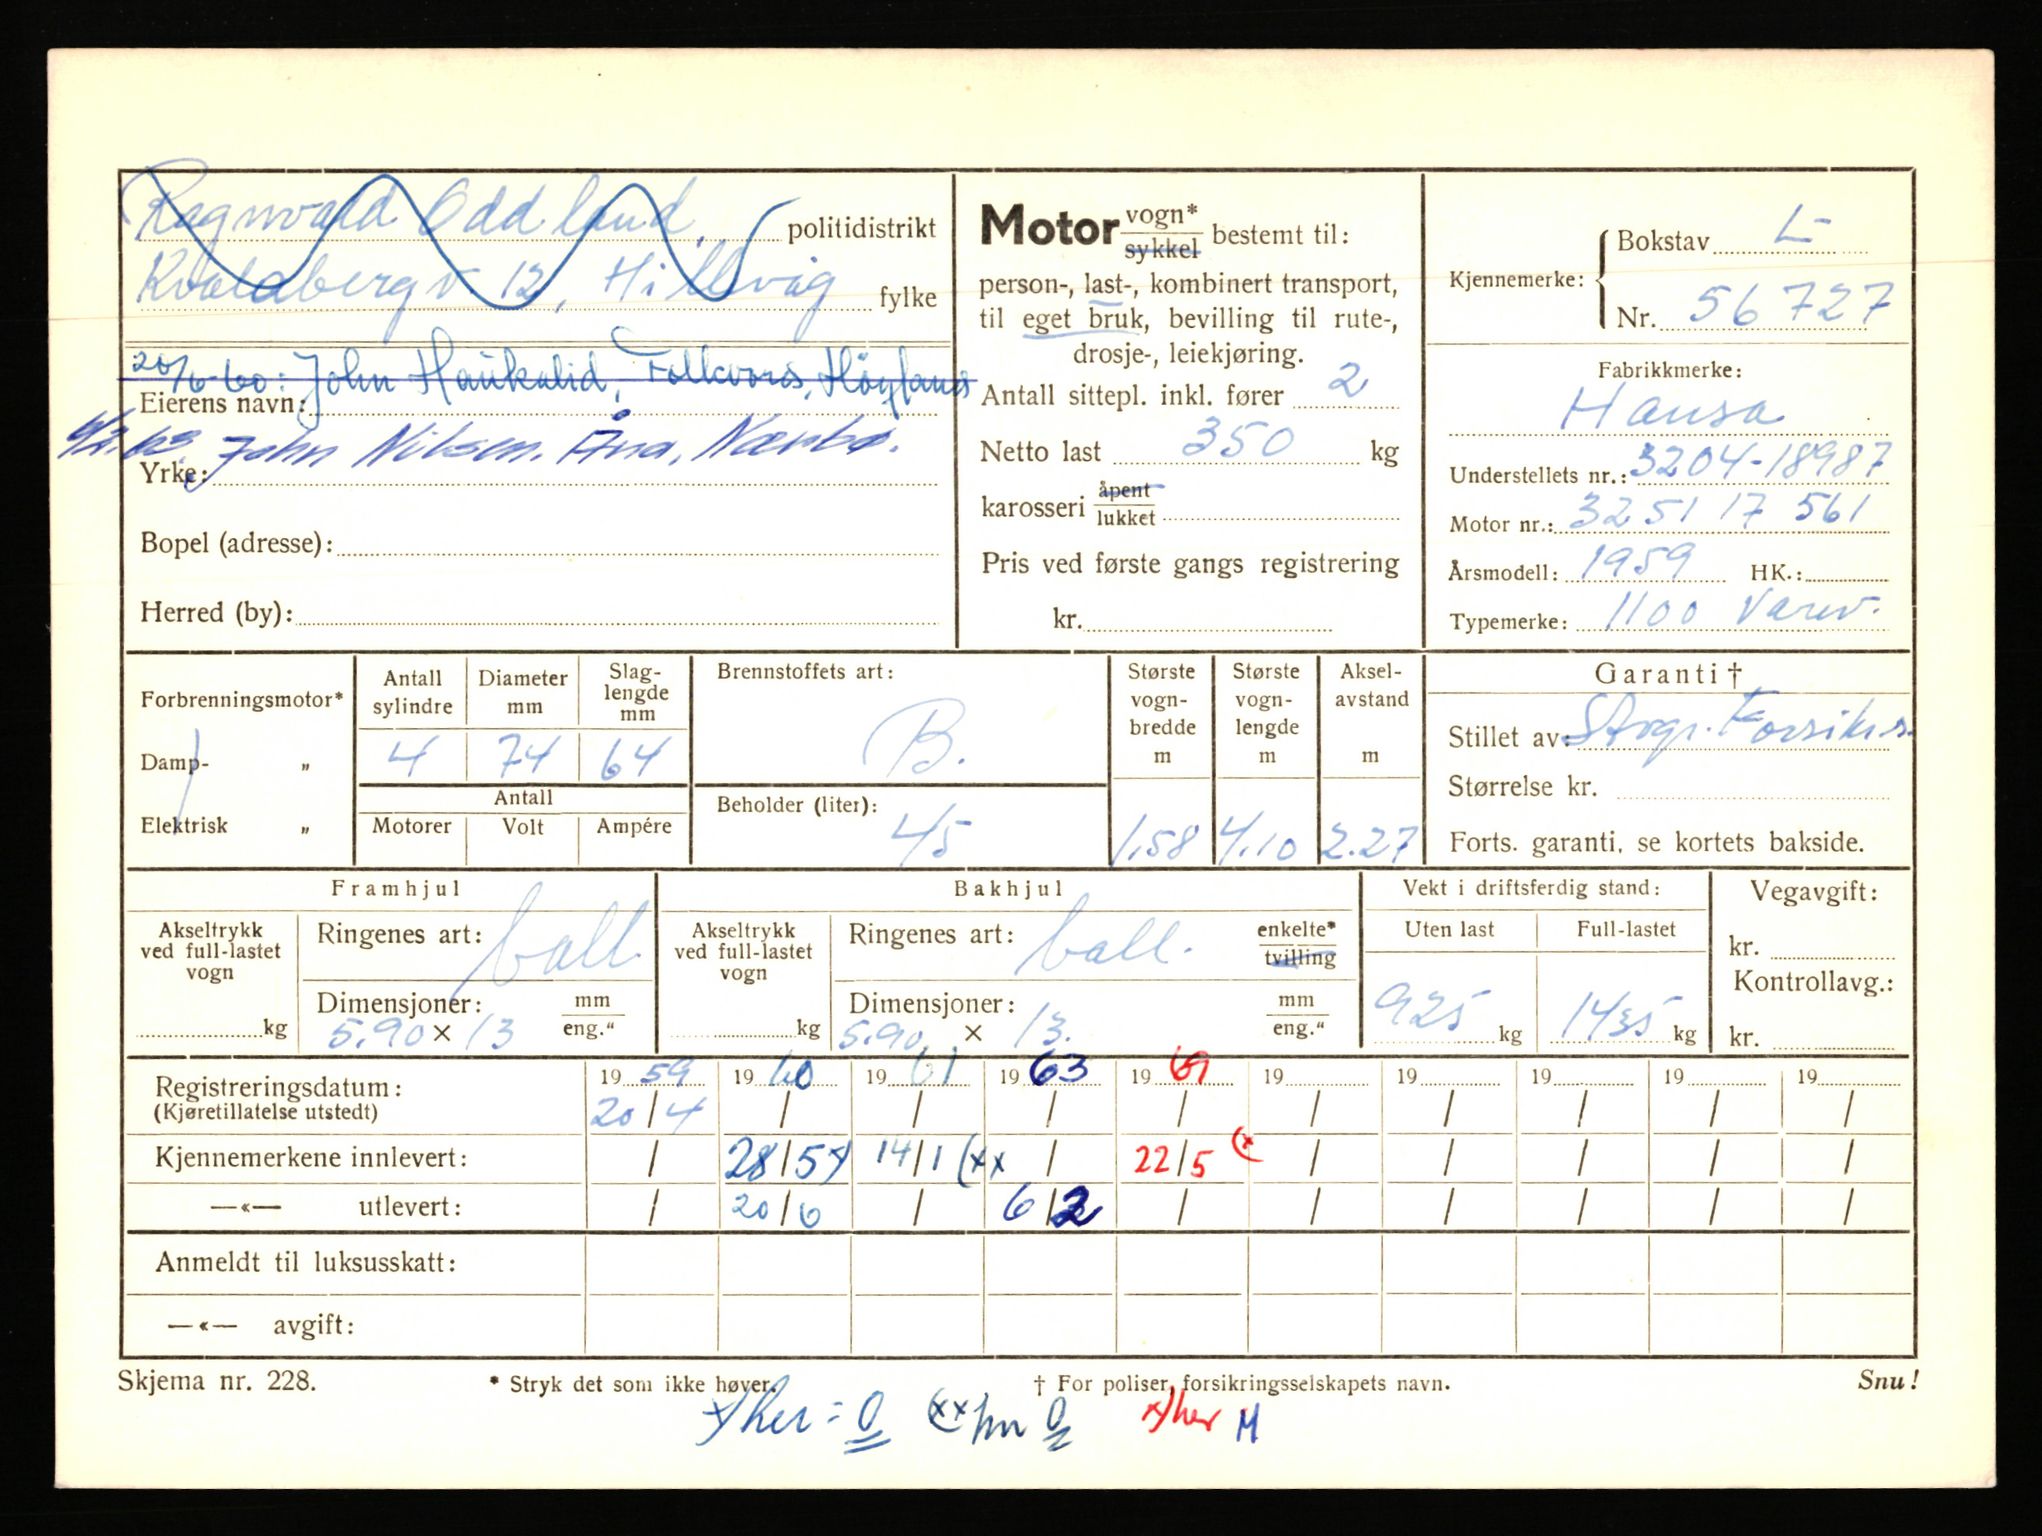 Ragnvald Oddland, politidistrikt
Kvaldbergv 12, Hillevåg fylke
20/6-60: John Haukalid, Folkvord, Høyland
Eierens navn:
6/2.63. John Nilsen. Åna, Nærbø.
Yrke:
Bopel (adresse):
Herred (by):
Motor vogn*
sykkel bestemt til:
person-, last-, kombinert transport,
til eget bruk, bevilling til rute-,
drosje-, leiekjøring.
Antall sittepl. inkl. fører 2
Netto last 350 kg
karosseri åpent
lukket
Pris ved første gangs registrering
kr.
Kjennemerke: Bokstav L-
Nr. 56727
Fabrikkmerke:
Hansa
Understellets nr.: 3204-18987
Motor nr.: 3251 17 561
Årsmodell: 1959 HK.:
Typemerke: 1100 Varev.
Forbrenningsmotor*
Damp- „
Elektrisk „
Antall sylindre Diameter mm Slaglengde mm
4 74 64
Antall
Motorer Volt Ampére
Brennstoffets art:
B.
Beholder (liter):
45
Største vognbredde m 1.58
Største vognlengde m 4.10
Akselavstand m 2.27
Garanti †
Stillet av: Stvgr. Forsikr.s.
Størrelse kr.
Forts. garanti, se kortets bakside.
Framhjul
Akseltrykk ved full-lastet vogn kg
Ringenes art: ball.
Dimensjoner: mm
5.90 × 13 eng."
Bakhjul
Akseltrykk ved full-lastet vogn kg
Ringenes art: ball. enkelte*
tvilling
Dimensjoner: mm
5.90 × 13. eng."
Vekt i driftsferdig stand:
Uten last Full-lastet
925 kg 1435 kg
Vegavgift:
kr.
Kontrollavg.:
kr.
Registreringsdatum: 19 59 19 60 19 61 19 63 19 69 19 19 19 19 19
(Kjøretillatelse utstedt) 20/4 / / / / / / / / /
Kjennemerkene innlevert: / 28/5 x) 14/1 (xx / 22/5 (x / / / / /
—«— utlevert: / 20/6 / 6/2 / / / / / /
Anmeldt til luksusskatt:
—«— avgift:
Skjema nr. 228. * Stryk det som ikke høver. † For poliser, forsikringsselskapets navn. Snu!
x) her = 0 (xx hr 0 x) her M